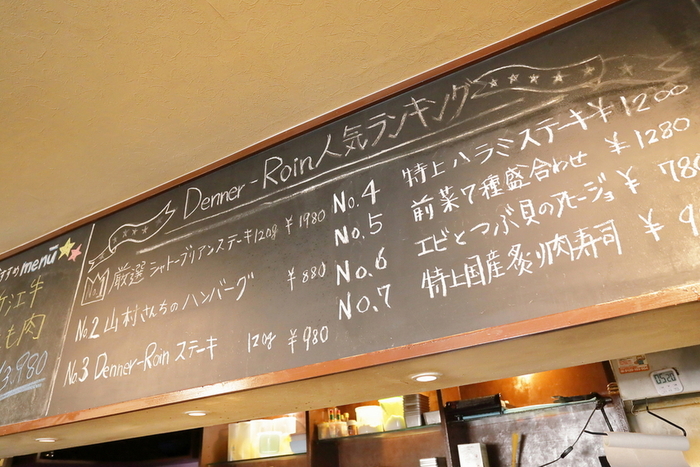 すすめ menu
江牛
も肉
3,980
Denner-Roin人気ランキング
No.1 厳選 シャトーブリアンステーキ120g ¥1980
No.2 山村さんちのハンバーグ ¥880
No.3 Denner-Roin ステーキ 120g ¥980
No.4 特上ハラミステーキ ¥1200
No.5 前菜7種盛合わせ ¥1280
No.6 エビとつぶ貝のアヒージョ ¥780
No.7 特上国産炙り肉寿司 ¥9